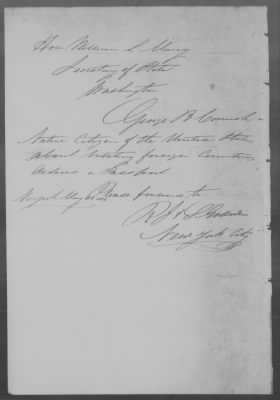 Hon William L Marcy
Secretary of State
Washington
George B
Native Citizen of the United States
about visiting foreign Countries
desires a Passport
New York May Please forward to
R
New York City